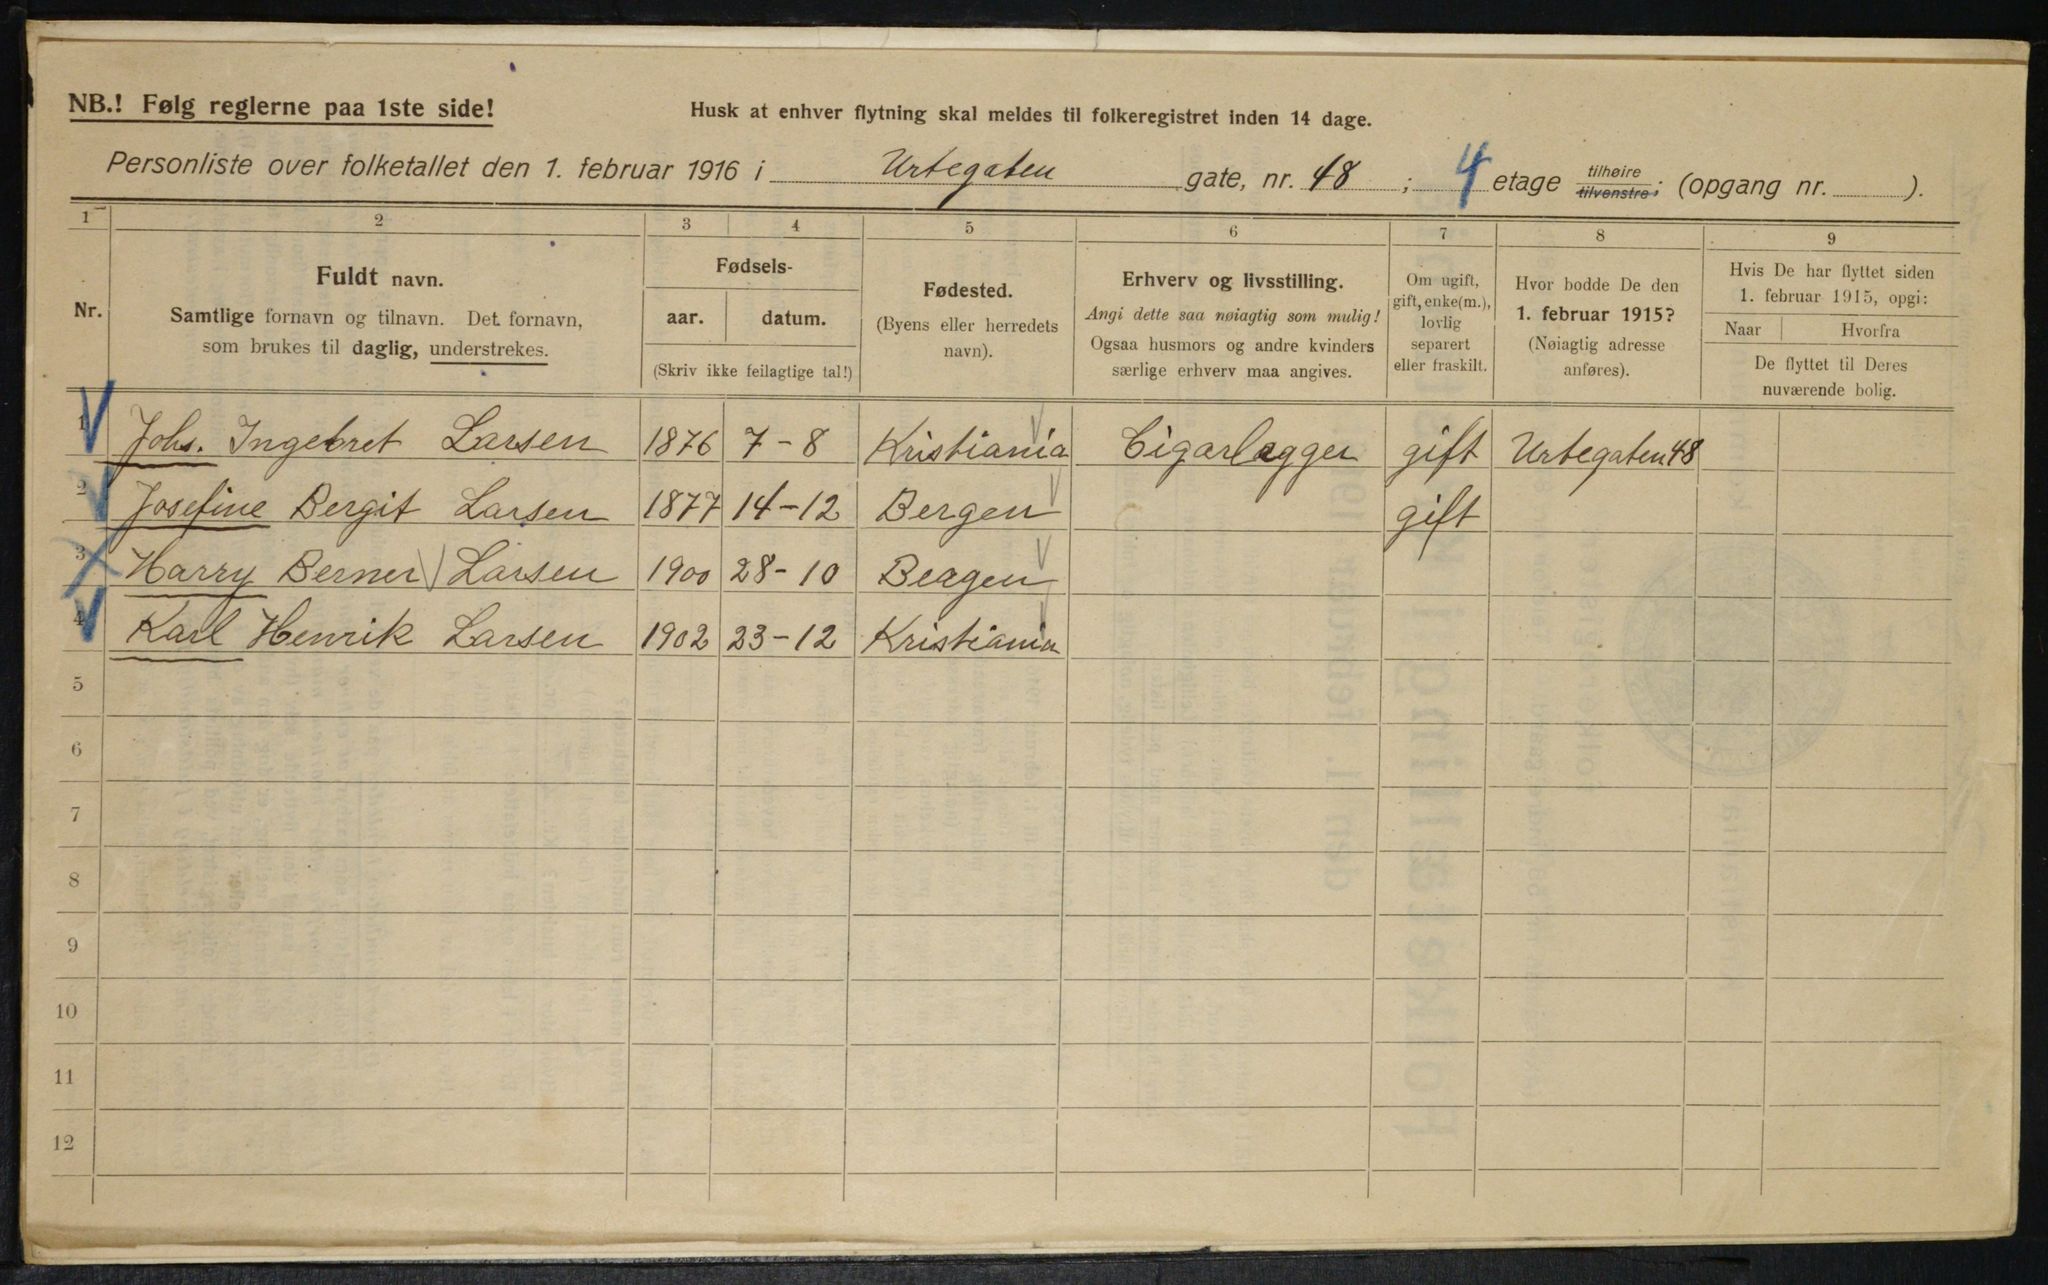 NB.! Følg reglerne paa 1ste side!
Husk at enhver flytning skal meldes til folkeregistret inden 14 dage.
Personliste over folketallet den 1. februar 1916 i Urtegaten gate, nr. 48 ; 4 etage tilhøire tilvenstre; (opgang nr. ).
1 2 3 4 5 6 7 8 9
Nr.
Fuldt navn.
Samtlige fornavn og tilnavn. Det fornavn,
som brukes til daglig, understrekes.
Fødsels-
aar. datum.
(Skriv ikke feilagtige tal!)
Fødested.
(Byens eller herredets
navn).
Erhverv og livsstilling.
Angi dette saa nøiagtig som mulig!
Ogsaa husmors og andre kvinders
særlige erhverv maa angives.
Om ugift,
gift, enke(m.),
lovlig
separert
eller fraskilt.
Hvor bodde De den
1. februar 1915?
(Nøiagtig adresse
anføres).
Hvis De har flyttet siden
1. februar 1915, opgi:
Naar Hvorfra
De flyttet til Deres
nuværende bolig.
1 Johs. Ingebret Larsen 1876 7-8 Kristiania Cigarlægger gift Urtegaten 48
2 Josefine Bergit Larsen 1877 14-12 Bergen gift
3 Harry Berner Larsen 1900 28-10 Bergen
4 Karl Henrik Larsen 1902 23-12 Kristiania
5
6
7
8
9
10
11
12